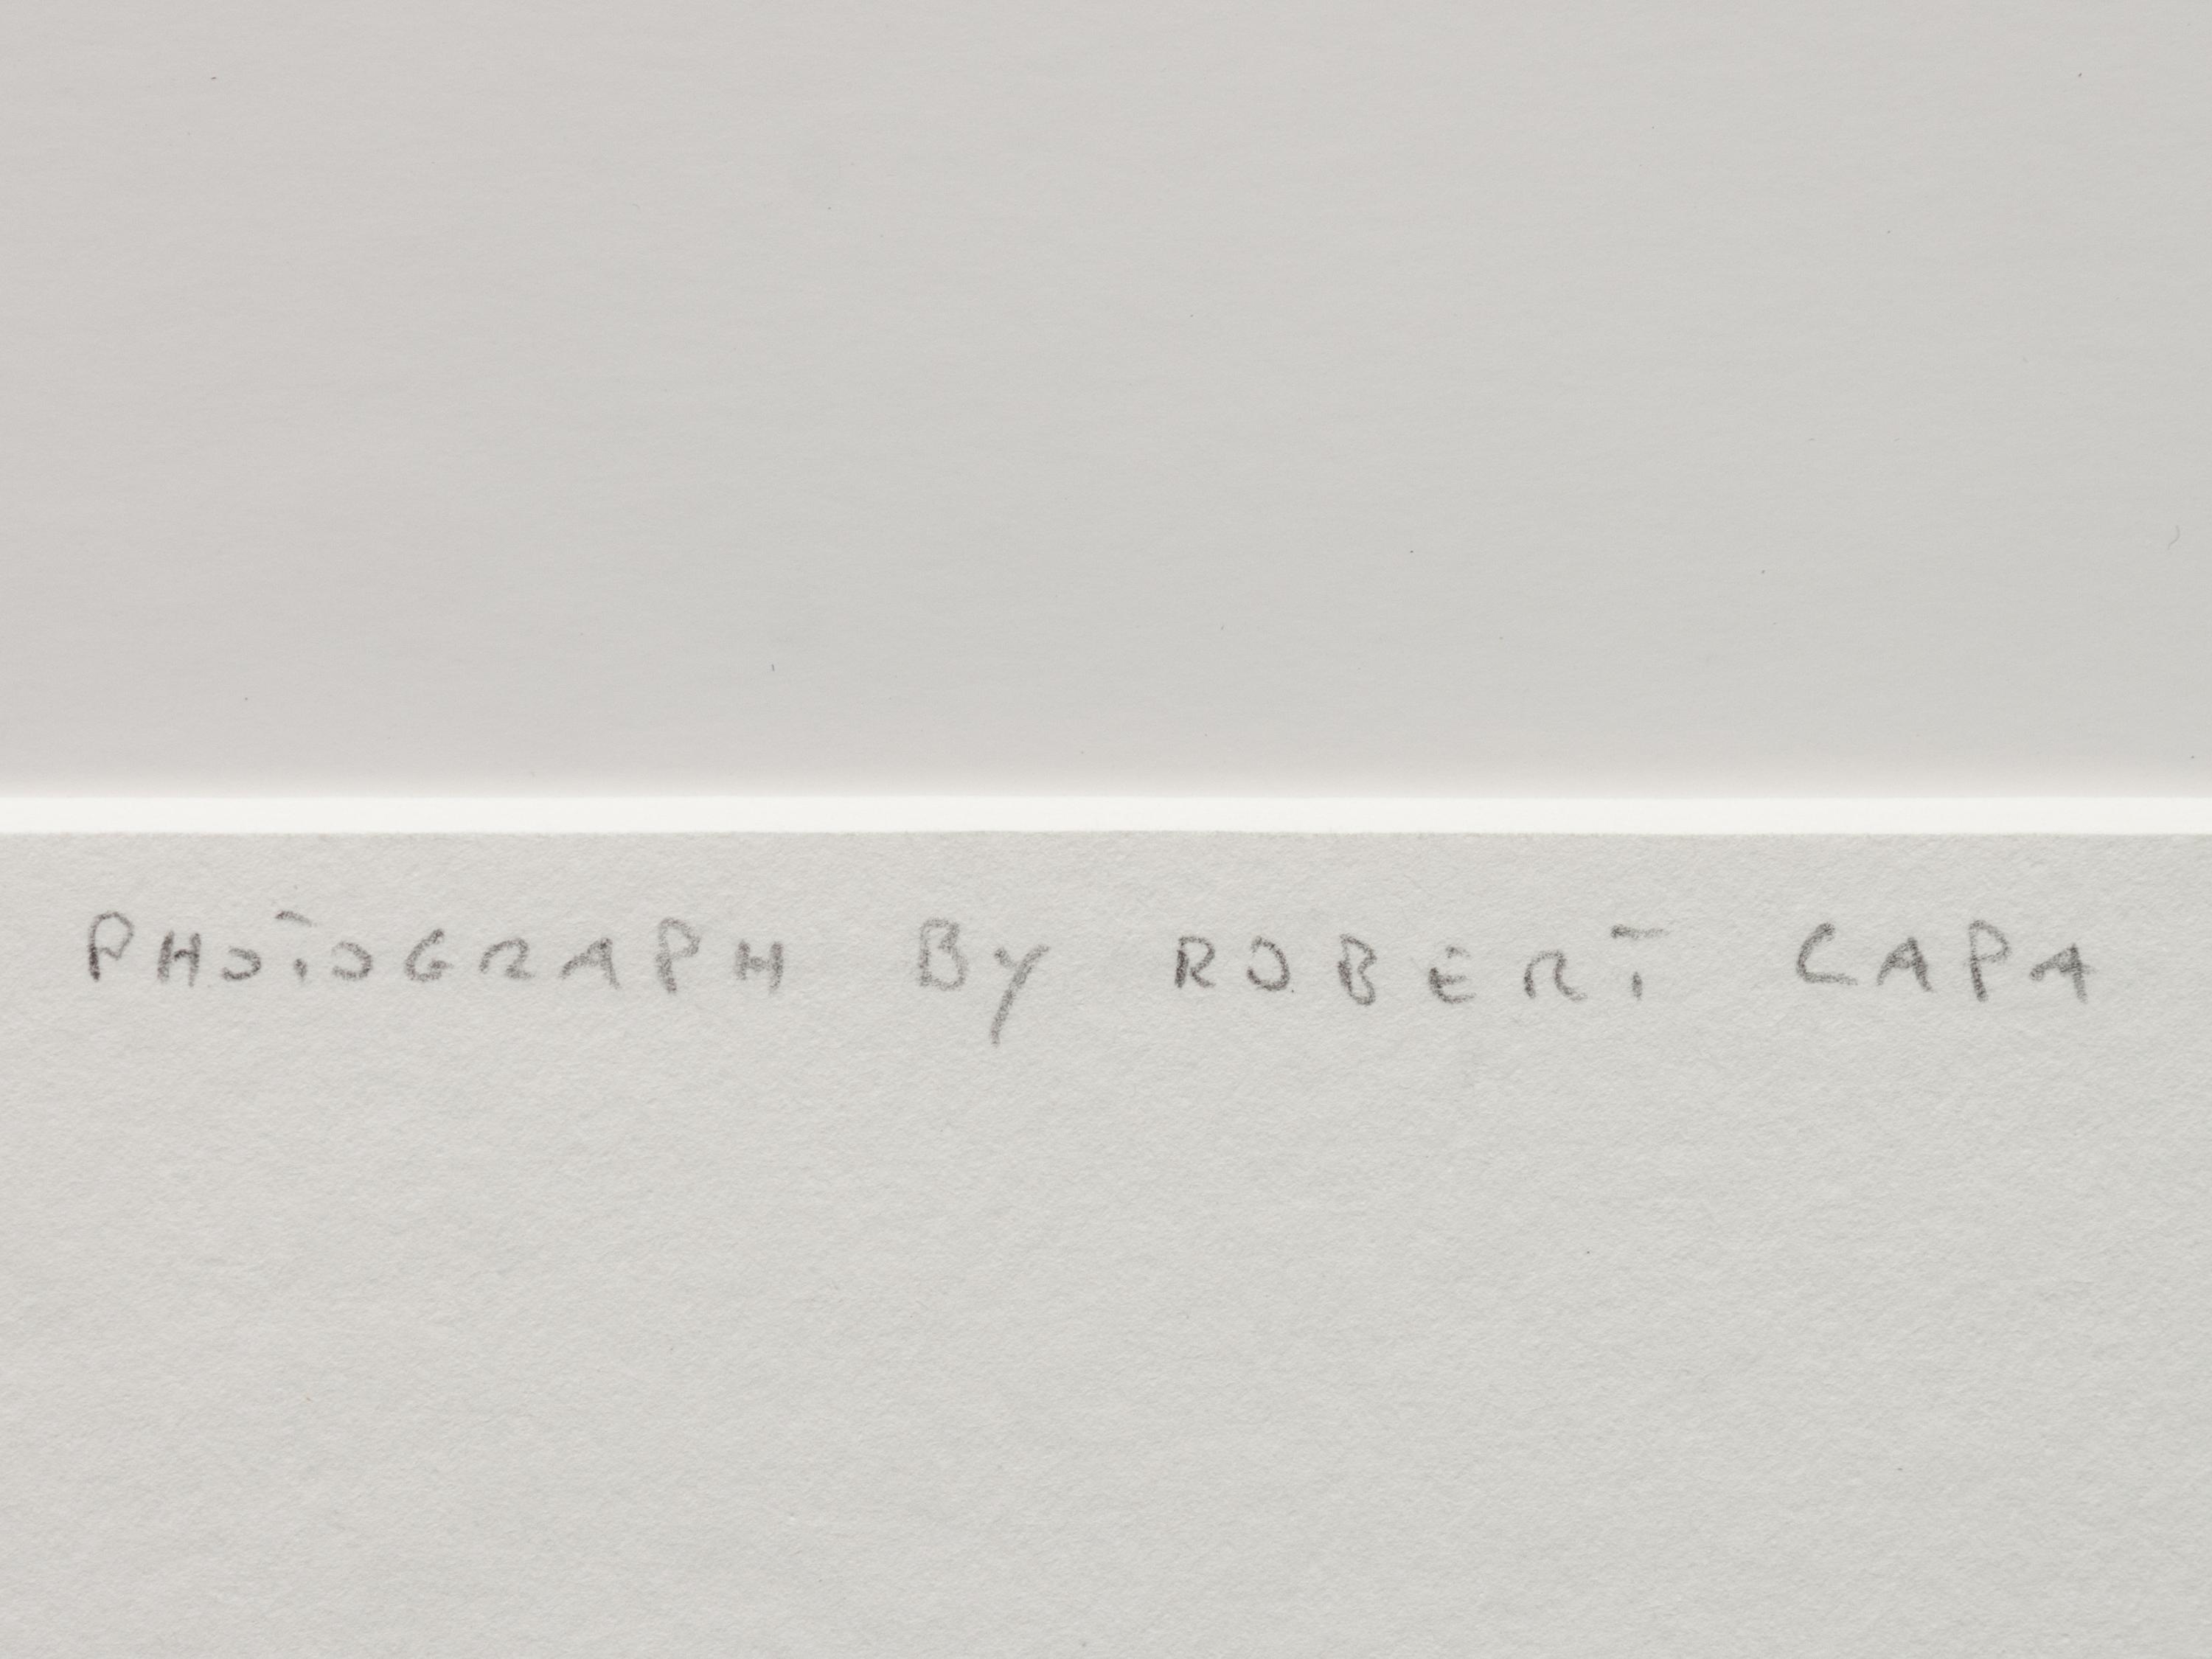 PHOTOGRAPH By ROBERT CAPA